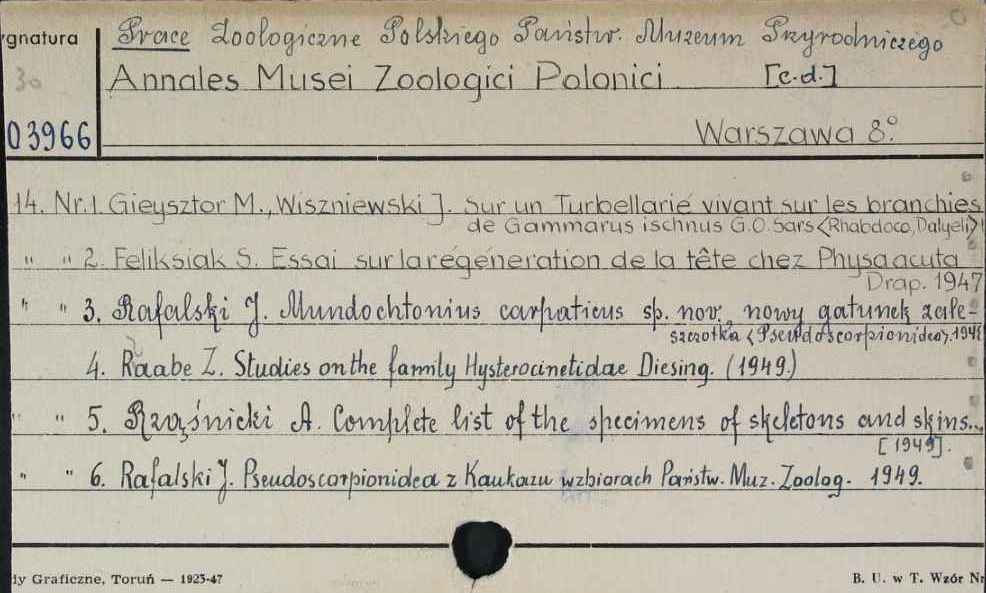 ygnatura
Prace Zoologiczne Polskiego Państw. Muzeum Przyrodniczego
30
Annales Musei Zoologici Polonici [c.d.]
03966
Warszawa 8°.
14. Nr. 1. Gieysztor M., Wiszniewski J. Sur un Turbellarié vivant sur les branchies
de Gammarus ischnus G.O. Sars <Rhabdoco, Dalyeli>
" " 2. Feliksiak S. Essai sur la régéneration de la tête chez Physa acuta
Drap. 1947
" " 3. Rafalski J. Mundochtonius carpaticus sp. nov., nowy gatunek zale-
szczotka <Pseudoscorpionidea>. 194
4. Raabe Z. Studies on the family Hysterocinetidae Diesing. (1949.)
" " 5. Rzaśnicki A. Complete list of the specimens of skeletons and skins...
[1949].
" " 6. Rafalski J. Pseudoscorpionidea z Kaukazu w zbiorach Państw. Muz. Zoolog. 1949.
dy Graficzne, Toruń — 1923-47
B. U. w T. Wzór Nr